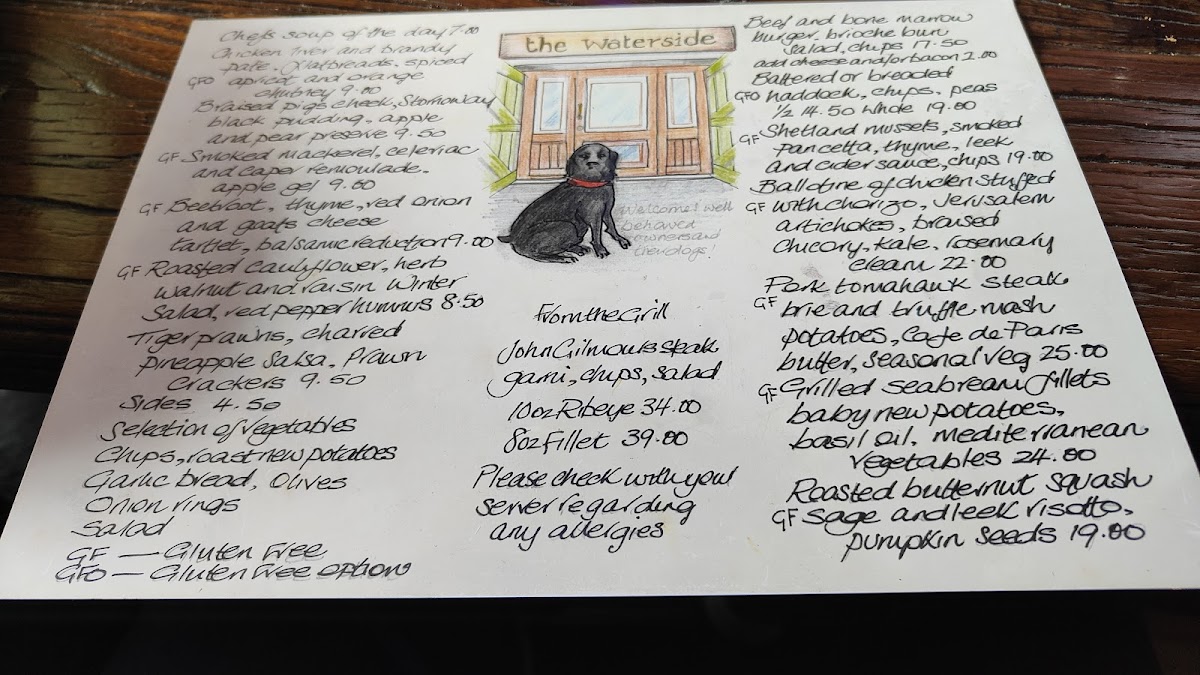 Chefs soup of the day 7.00
Chicken liver and brandy
pate, flatbreads, spiced
GFO apricot and orange
chutney 9.00
Braised pigs cheek, Stornoway
black pudding, apple
and pear preserve 9.50
GF Smoked mackerel, celeriac
and caper remoulade.
apple gel 9.00
GF Beetroot, thyme, red onion
and goats cheese
tartlet, balsamic reduction 9.00
GF Roasted cauliflower, herb
walnut and raisin winter
salad, red pepper hummus 8.50
Tiger prawns, charred
pineapple salsa, prawn
crackers 9.50
Sides 4.50
Selection of vegetables
Chips, roast new potatoes
Garlic bread, Olives
Onion rings
Salad
GF — Gluten Free
GFO — Gluten Free options
the waterside
Welcome! well
behaved
owners and
their dogs!
From the Grill
John Gilmours steak
garni, chips, salad
10oz Ribeye 34.00
8oz Fillet 39.00
Please check with your
server regarding
any allergies
Beef and bone marrow
burger, brioche bun
salad, chips 17.50
add cheese and/or bacon 2.00
Battered or breaded
GFO haddock, chips, peas
½ 14.50 whole 19.00
GF Shetland mussels, smoked
pancetta, thyme, leek
and cider sauce, chips 19.00
Ballotine of chicken stuffed
GF with chorizo, Jerusalem
artichokes, braised
chicory, kale, rosemary
cream 22.00
Pork tomahawk steak
GF brie and truffle mash
potatoes, Cafe de Paris
butter, seasonal veg 25.00
GF Grilled seabream fillets
baby new potatoes,
basil oil, mediterranean
vegetables 24.00
Roasted butternut squash
GF sage and leek risotto,
pumpkin seeds 19.00